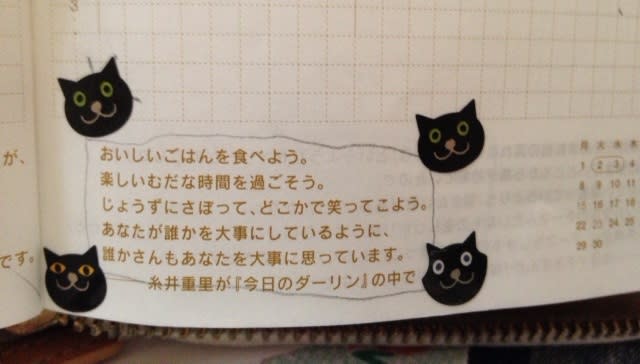 3
が、
おいしいごはんを食べよう。
楽しいむだな時間を過ごそう。
じょうずにさぼって、どこかで笑ってこよう。
あなたが誰かを大事にしているように、
誰かさんもあなたを大事に思っています。
です。
糸井重里が『今日のダーリン』の中で
月 火 水 木
1 2 3 4
8 9 10 11
15 16 17 18
22 23 24 25
29 30